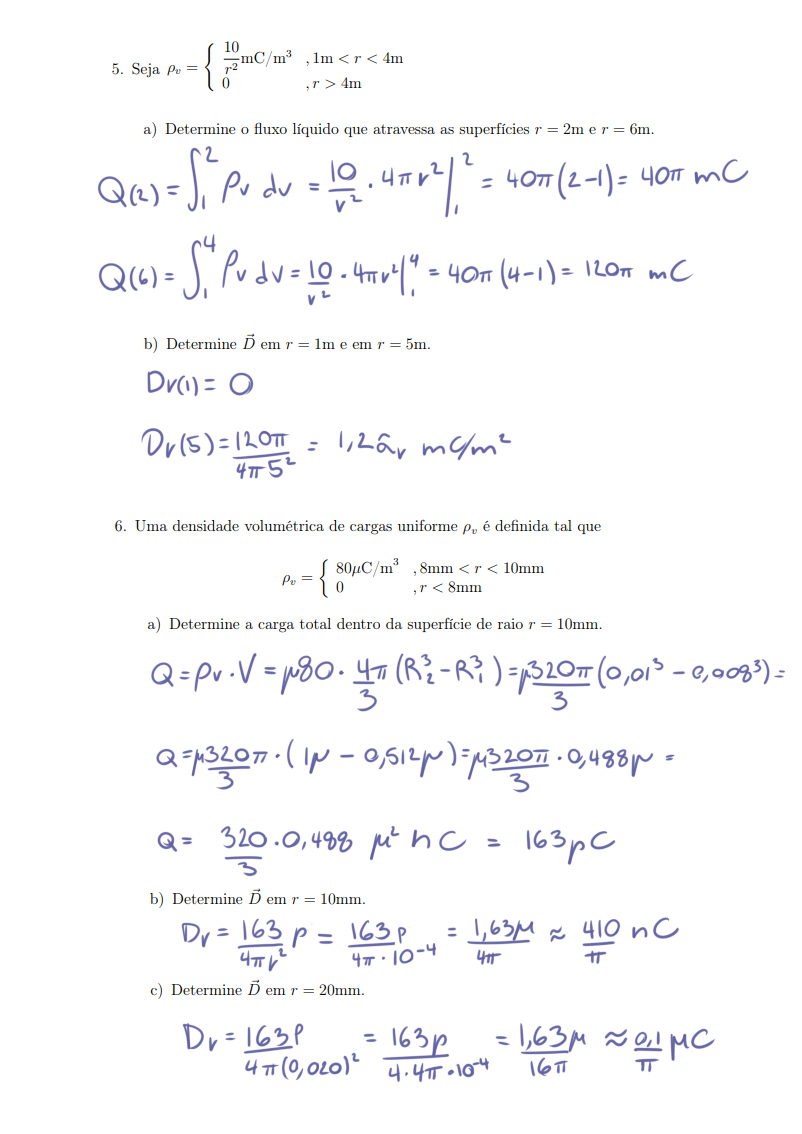 5. Seja ρv = { 10/r² mC/m³ , 1m < r < 4m
0 , r > 4m
a) Determine o fluxo líquido que atravessa as superfícies r = 2m e r = 6m.
Q(2) = ∫₁² ρv dv = 10/r² · 4πr² |₁² = 40π(2-1) = 40π mC
Q(6) = ∫₁⁴ ρv dv = 10/r² · 4πr² |₁⁴ = 40π (4-1) = 120π mC
b) Determine D⃗ em r = 1m e em r = 5m.
Dr(1) = 0
Dr(5) = 120π/4π5² = 1,2 âr mC/m²
6. Uma densidade volumétrica de cargas uniforme ρv é definida tal que
ρv = { 80μC/m³ , 8mm < r < 10mm
0 , r < 8mm
a) Determine a carga total dentro da superfície de raio r = 10mm.
Q = ρv · V = μ80 · 4π/3 (R₂³ - R₁³) = μ320π/3 (0,01³ - 0,008³) =
Q = μ320π/3 · (1μ - 0,512μ) = μ320π/3 · 0,488μ =
Q = 320/3 · 0,488 μ² π C = 163pC
b) Determine D⃗ em r = 10mm.
Dr = 163/4πr² p = 163p/4π·10⁻⁴ = 1,63μ/4π ≈ 410/π nC
c) Determine D⃗ em r = 20mm.
Dr = 163p/4π(0,020)² = 163p/4·4π·10⁻⁴ = 1,63μ/16π ≈ 0,1/π μC